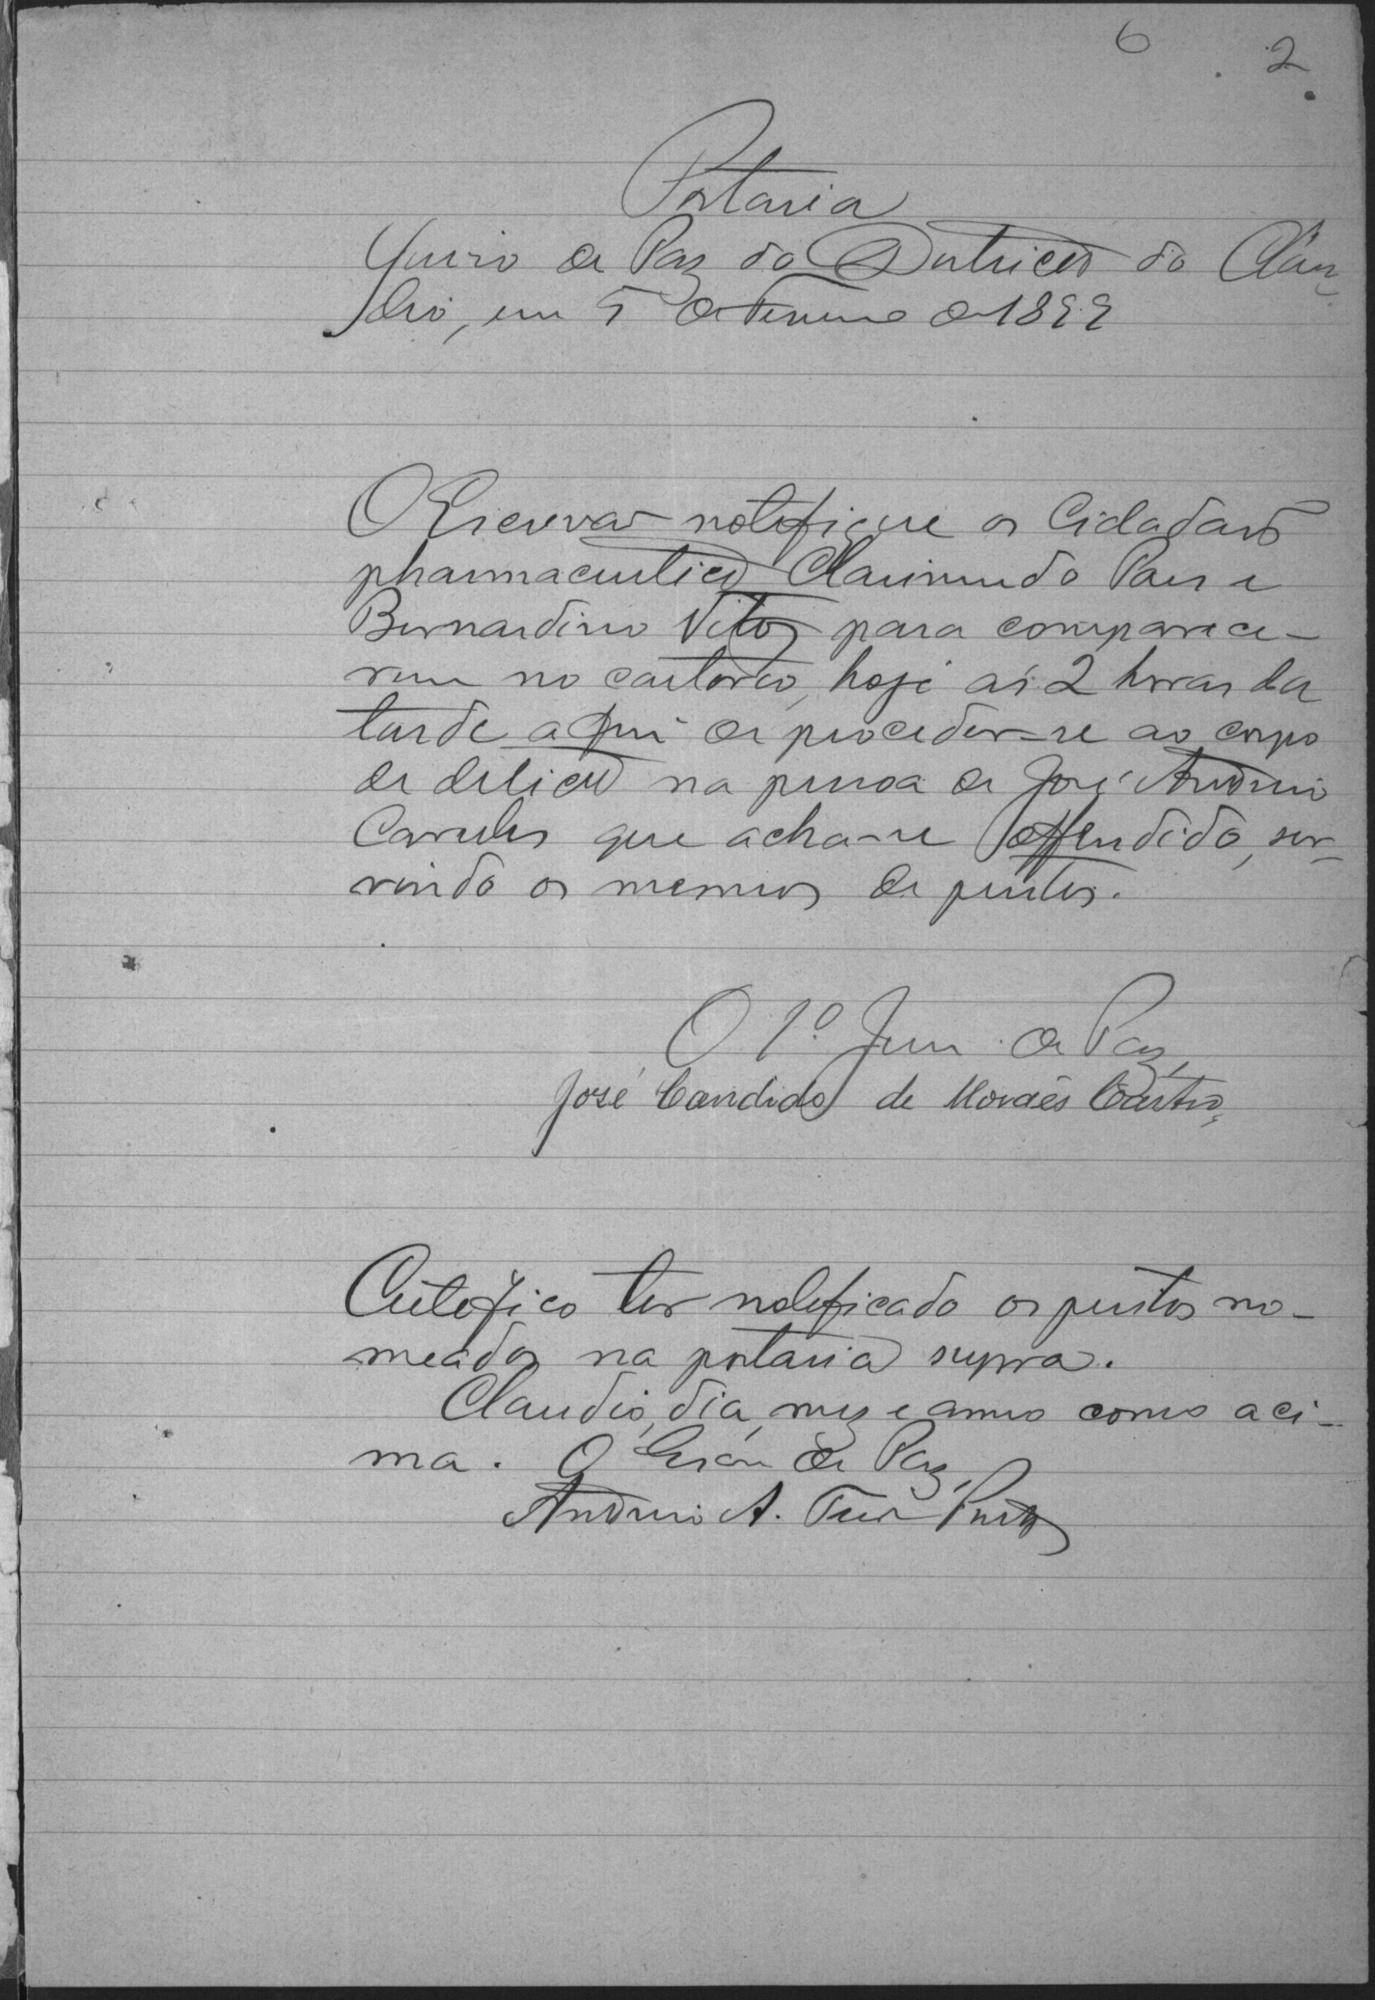 6 2
Portaria
Juizo de Paz do Districto do Clau-
dio, em 5 de Fevereiro de 1899
O Escrivão notifique os Cidadãos
pharmaceutico Clarimundo Paes e
Bernardino Vito para comparece-
rem no cartorio, hoje as 2 horas da
tarde a fim de proceder-se ao corpo
de delicto na pessoa de José Antonio
que acha-se offendido, ser-
vindo os mesmos de peritos.
O 1º Juiz de Paz,
José Candido de Moraes Castro,
Certefico ter noteficado os peritos no-
meados na portaria supra.
Claudio, dia, mez e anno como aci-
ma. O Escrm de Paz,
Antonio A.